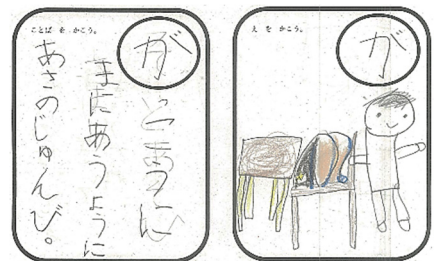 ことば を かこう。
がっこうに
まにあうように
あさのじゅんび。
え を かこう。
が